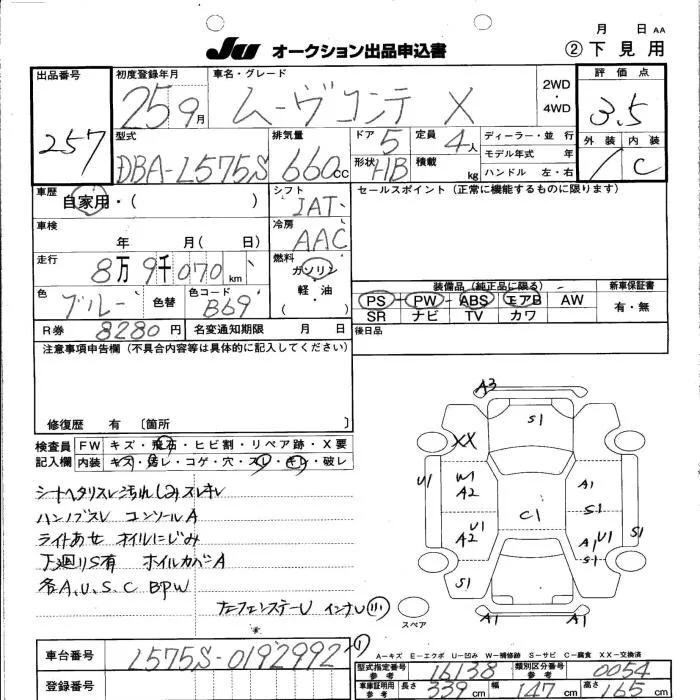 月 日 AA
JU オークション出品申込書 ②下見用
出品番号 257
初度登録年月 25 9月
車名・グレード ムーヴコンテ X
2WD・4WD
評価点 3.5
外装 内装 C
型式 DBA-L575S
排気量 660cc
ドア 5
定員 4人
形状 HB
積載 kg
ディーラー・並行
モデル年式 年
ハンドル 左・右
車歴 自家用・( )
シフト IAT
セールスポイント(正常に機能するものに限ります)
車検 年 月( 日)
冷房 AAC
走行 8万9千070km
燃料 ガソリン 軽・油 ( )
色 ブルー 色替
色コード B69
装備品(純正品に限る)
PS PW ABS エアB AW
SR ナビ TV カワ
新車保証書 有・無
R券 8280円
名変通知期限 月 日
後日品
注意事項申告欄(不具合内容等は具体的に記入してください)
修復歴 有 〔箇所 〕
検査員記入欄
FW キズ・飛石・ヒビ割・リペア跡・X要
内装 キズ・汚レ・コゲ・穴・スレ・キレ・破レ
シートヘタリスレ汚れしみスレキレ
ハンノブスレ コンソールA
ライトあせ オイルにじみ
下廻りS有 ホイルカバーA
各A.U.S.C BPW
A3
S1
XX
U1
W1
A2
A1
S1
C1
U1
A2
A1
U1
S1
S1
S1
A1
A1
スペア
車台番号 L575S-0192992
登録番号
A－キズ E－エクボ U－凹み W－補修跡 S－サビ C－腐食 XX－交換済
型式指定番号 参考 16138
類別区分番号 参考 0054
車庫証明用 参考 長さ 339cm 幅 147cm 高さ 165cm